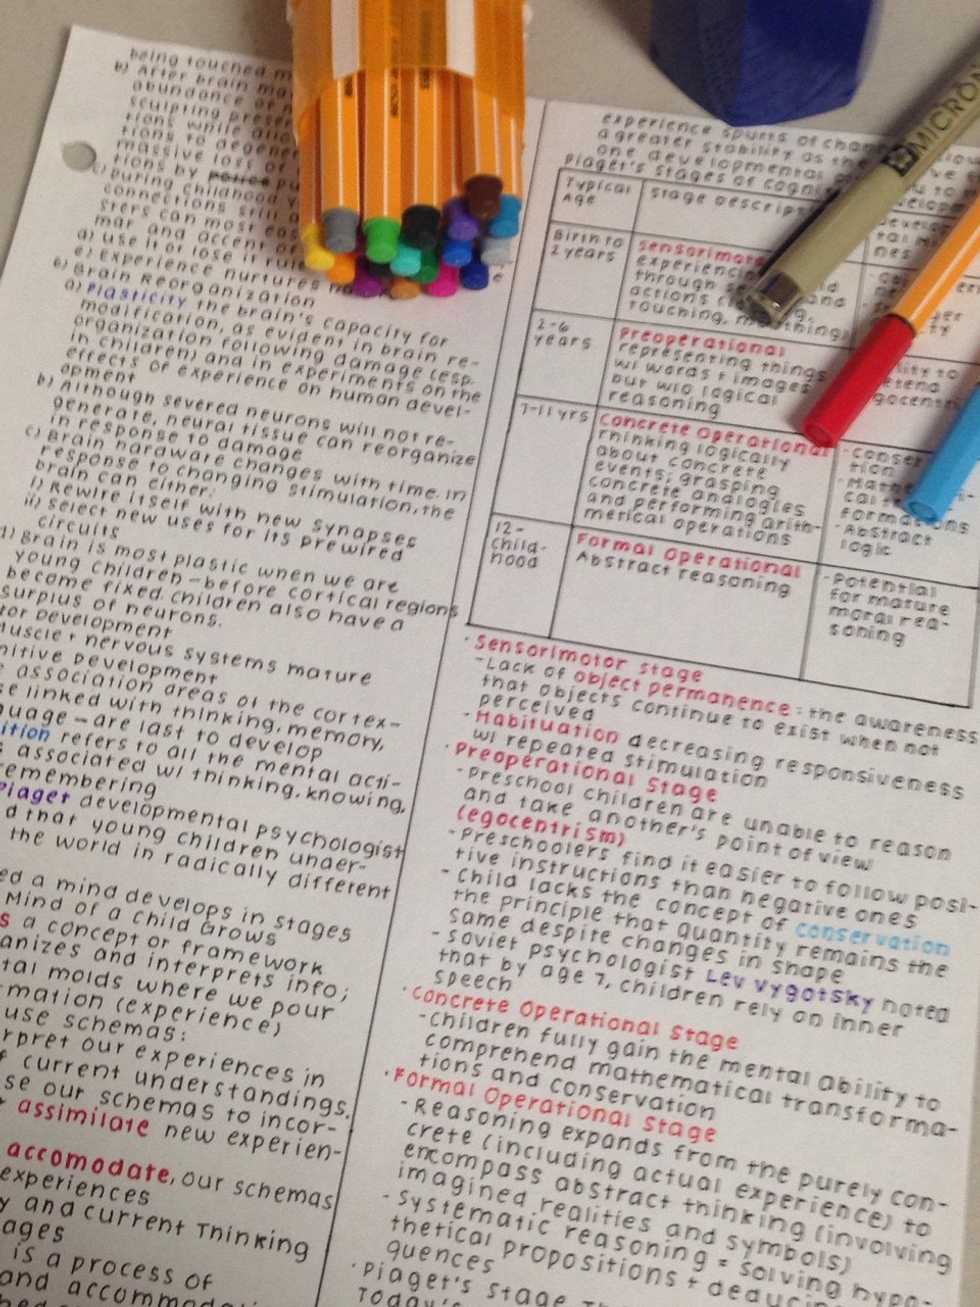 being touched
b) After brain
abundance of
sculpting
tions while
tions to degener
massive loss of
tions by police
c) During childhood
connections still
sters can most
mar and accent
d) use it or lose it rule
e) Experience nurtures
6) Brain Reorganization
a) Plasticity the brain's capacity for
modification, as evident in brain re-
organization following damage (esp.
in children) and in experiments on the
effects of experience on human devel-
opment
b) Although severed neurons will not re-
generate, neural tissue can reorganize
in response to damage
c) Brain hardware changes with time. In
response to changing stimulation, the
brain can either:
i) Rewire itself with new synapses
ii) Select new uses for its prewired
circuits
d) Brain is most plastic when we are
young children - before cortical regions
become fixed. Children also have a
surplus of neurons.
tor Development
Muscle + nervous systems mature
nitive Development
association areas of the cortex-
se linked with thinking, memory,
guage - are last to develop
ition refers to all the mental acti-
s associated w/ thinking, knowing,
remembering
Piaget developmental psychologist
d that young children under-
the world in radically different
ed a mind develops in stages
Mind of a Child Grows
s a concept or framework
anizes and interprets info;
tal molds where we pour
mation (experience)
use schemas:
rpret our experiences in
f current understandings.
se our schemas to incor-
assimilate new experien-
accomodate, our schemas
experiences
y and current Thinking
ages
is a process of
experience spurts of
a greater stability as the
one developmental
Piaget's Stages of
Typical Age
Stage
Birth to 2 years
experiencing
through
actions
touching,
2-6 years
Preoperational
representing things
w/ words + images
but w/o logical
reasoning
7-11 yrs
Concrete Operational
Thinking logically
about concrete
events; grasping
concrete analogies
and performing arith-
metical operations
- Abstract
logic
12-
Child-
hood
Formal Operational
Abstract reasoning
- Potential
for mature
moral rea-
soning
· Sensorimotor Stage
- Lack of object permanence: the awareness
that objects continue to exist when not
perceived
- Habituation decreasing responsiveness
w/ repeated stimulation
· Preoperational Stage
- Preschool children are unable to reason
and take another's point of view
(egocentrism)
- Preschoolers find it easier to follow posi-
tive instructions than negative ones
- Child lacks the concept of conservation
the principle that quantity remains the
same despite changes in shape
- Soviet psychologist Lev Vygotsky noted
that by age 7, children rely on inner
speech
· Concrete Operational Stage
- Children fully gain the mental ability to
comprehend mathematical transforma-
tions and conservation
· Formal Operational Stage
- Reasoning expands from the purely con-
crete (including actual experience) to
encompass abstract thinking (involving
imagined realities and symbols)
- Systematic reasoning = solving hypo-
thetical propositions +
quences
· Piaget's Stage
Today's
MICRON